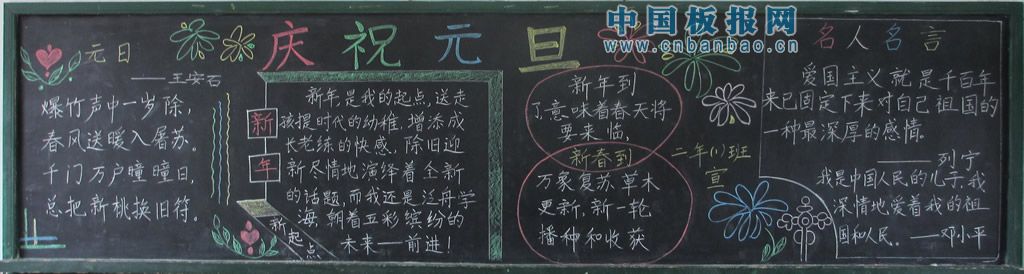 中国板报网
www.cnbanbao.cn
庆祝元旦
元日
——王安石
爆竹声中一岁除,
春风送暖入屠苏。
千门万户曈曈日,
总把新桃换旧符。
新年
新年是我的起点,送走
孩提时代的幼稚,增添成
长老练的快感。除旧迎
新尽情地演绎着全新
的话题,而我还是泛舟学
海,朝着五彩缤纷的
未来——前进!
新起点
新年到
了,意味着春天将
要来临。
新春到
万象复苏,草木
更新,新一轮
播种和收获
二年(1)班
宣
名人名言
爱国主义就是千百年
来已固定下来对自己祖国的
一种最深厚的感情。
——列宁
我是中国人民的儿子,我
深情地爱着我的祖
国和人民。——邓小平